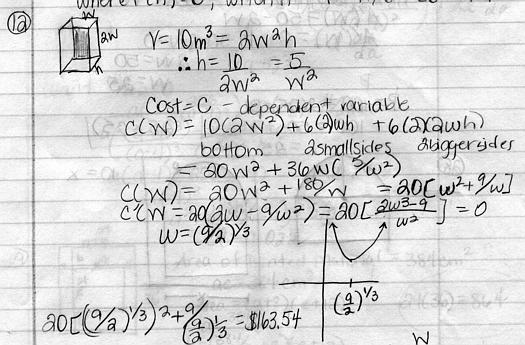 12
w
2w
h
V=10m³=2w²h
∴h=10/2w²=5/w²
Cost=C - dependent variable
C(w)=10(2w²)+6(2)wh+6(2)(2wh)
bottom 2smallsides 2biggersides
=20w²+36w(5/w²)
C(w)=20w²+180/w =20[w²+9/w]
C'(w=20(2w-9/w²)=20[2w³-9/w²]=0
w=(9/2)^1/3
(9/2)^1/3
20[((9/2)^1/3)²+9/(9/2)^1/3=$163.54
W